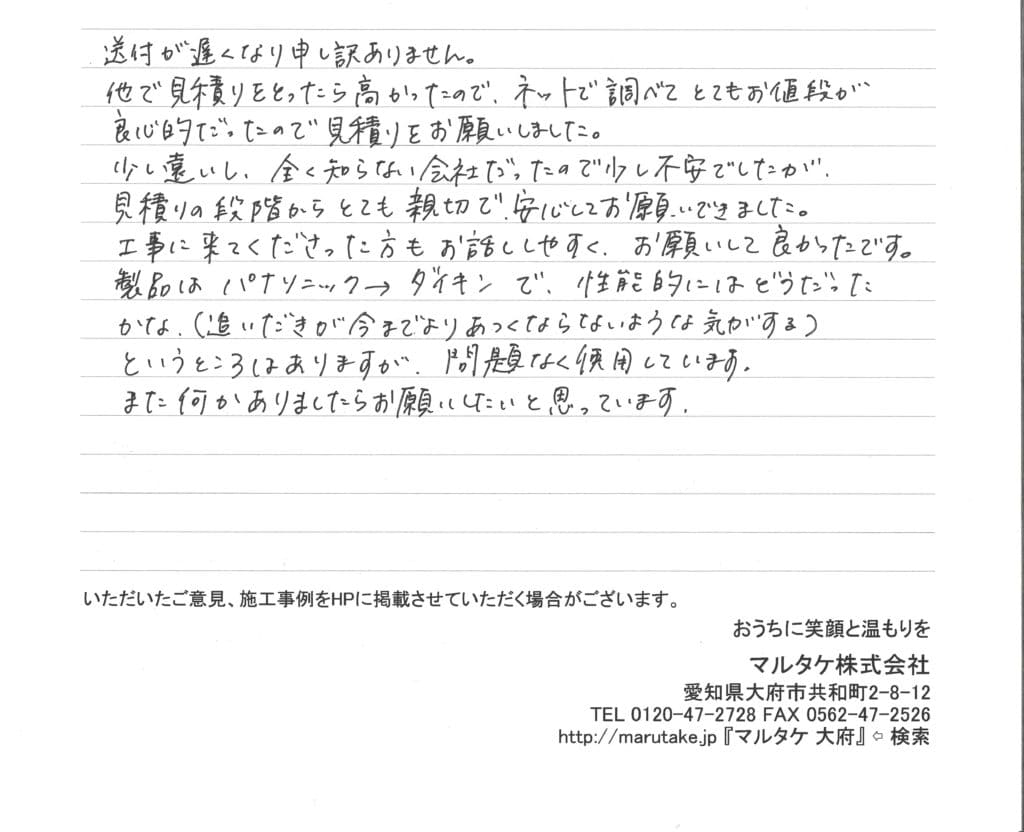 送付が遅くなり申し訳ありません。
他で見積りをとったら高かったので、ネットで調べてとてもお値段が
良心的だったので見積りをお願いしました。
少し遠いし、全く知らない会社だったので少し不安でしたが、
見積りの段階からとても親切で、安心してお願いできました。
工事に来てくださった方もお話ししやすく、お願いして良かったです。
製品はパナソニック→ダイキンで、性能的にはどうだった
かな、(追いだきが今までよりあつくならないような気がする)
というところはありますが、問題なく使用しています。
また何かありましたらお願いしたいと思っています。
いただいたご意見、施工事例をHPに掲載させていただく場合がございます。
おうちに笑顔と温もりを
マルタケ株式会社
愛知県大府市共和町2-8-12
TEL 0120-47-2728 FAX 0562-47-2526
http://marutake.jp『マルタケ 大府』⇦ 検索